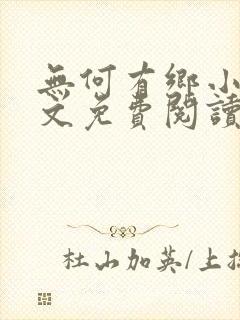 無何有鄉小
文免費閱讀
杜山加英/上